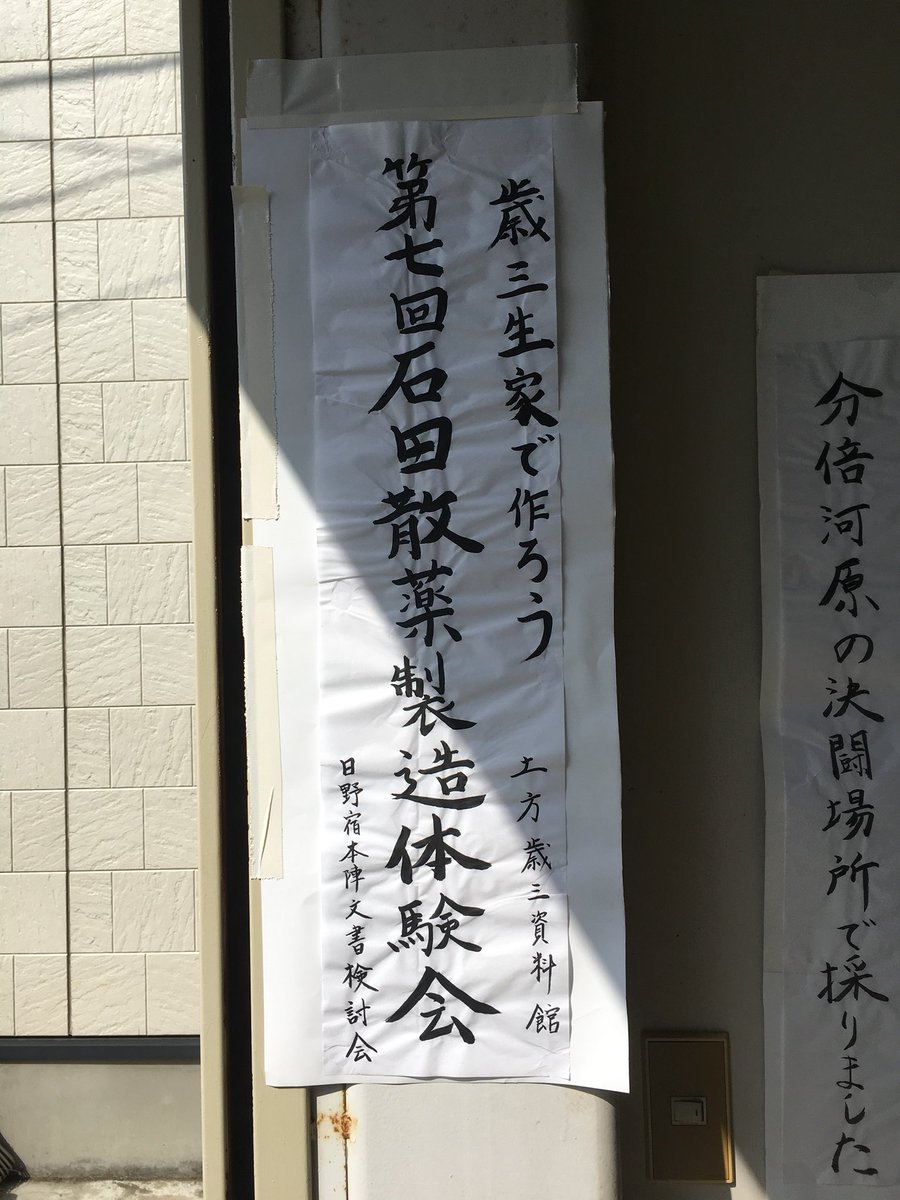 歳三生家で作ろう
土方歳三資料館
第七回石田散薬製造体験会
日野宿本陣文書検討会
分倍河原の決闘場所で採りました